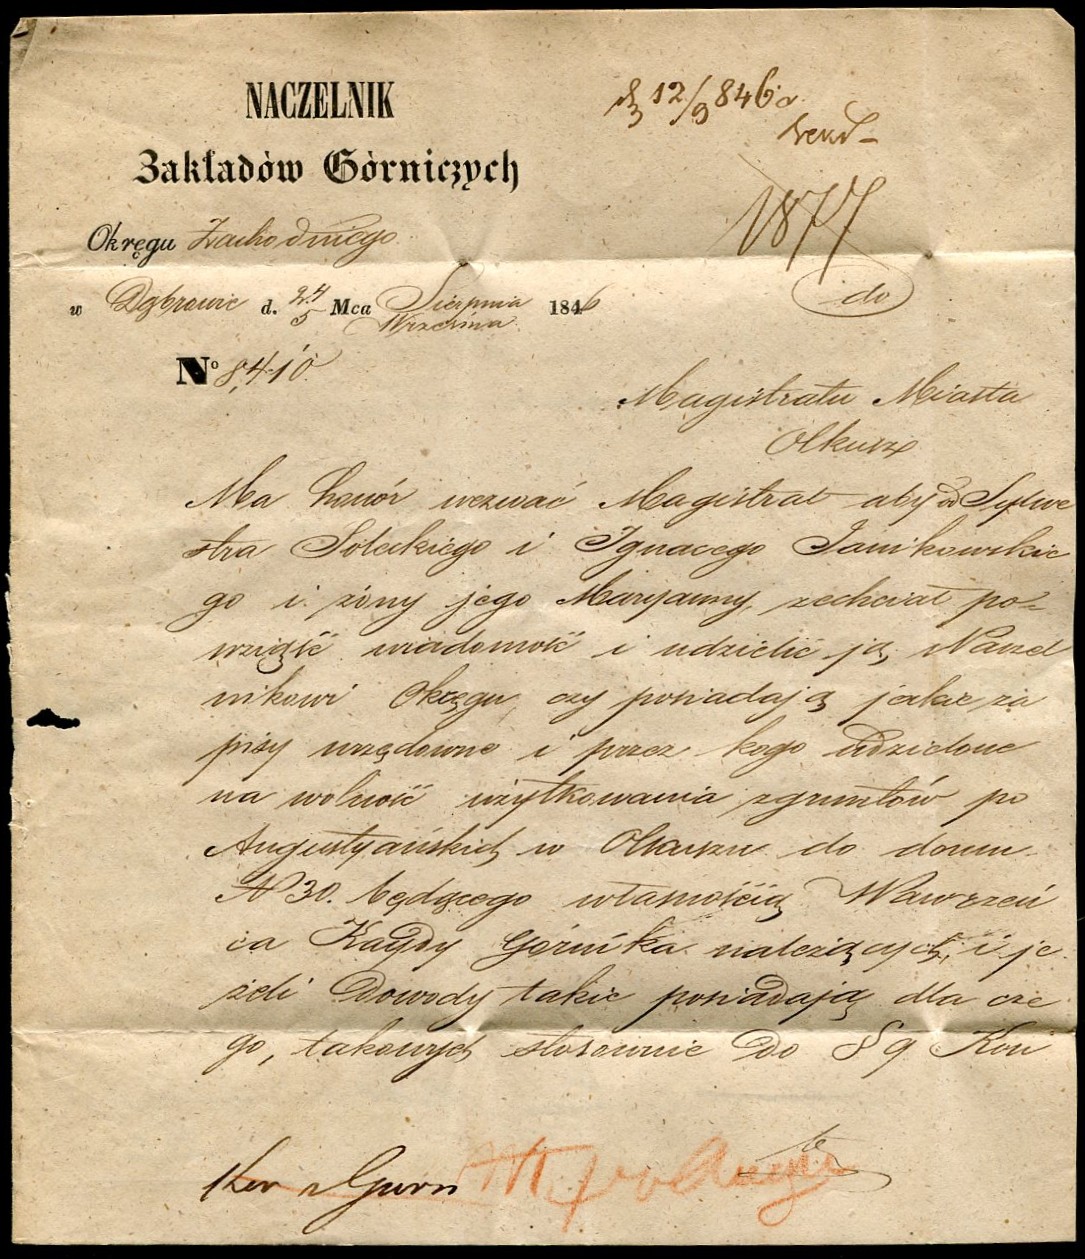 NACZELNIK
Zakładów Górniczych
Okręgu Zachodniego
w Dąbrowie d. 24/5 Mca Sierpnia/Września 1846
No 8,410.
12/9 846 r.
1877
do
Magistratu Miasta
Olkusza
Ma honór wezwać Magistrat aby od Sylwe
stra Soleckiego i Ignacego Janikowskie
go i żony jego Maryanny, zechciał po-
wziąść wiadomość i udzielić ją Naczel
nikowi Okręgu, czy posiadają jakie za
pisy urzędowne i przez kogo udzielone
na wolność użytkowania zgruntów po
Augustyańskich w Olkuszu do domu
N 30. będącego własnością Wawrzeń
ca Kaydy Górnika należących, i je
żeli Dowody takie posiadają dla cze
go, takowych stosownie do § 9 Kon